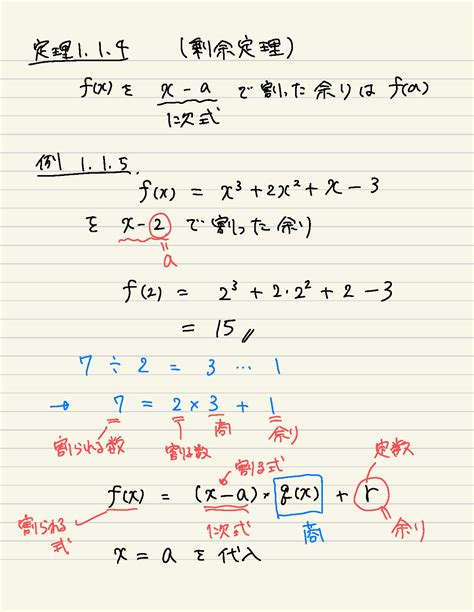 定理1.1.4 (剰余定理)
f(x)を x-a で割った余りは f(a)
1次式
例 1.1.5.
f(x) = x³+2x²+x-3
を x-2 で割った余り
a
f(2) = 2³+2・2²+2-3
= 15
7 ÷ 2 = 3 … 1
→ 7 = 2×3+1
割られる数 割る数 商 余り
割る式 定数
f(x) = (x-a)・g(x) + r
割られる式 1次式 商 余り
x = a を代入